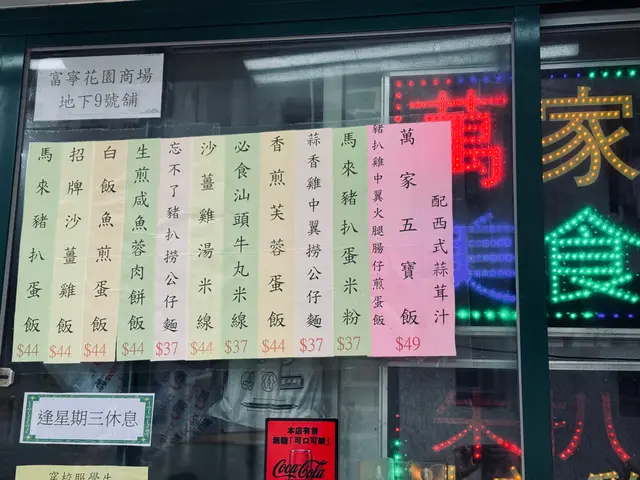 富寧花園商場
地下9號舖
馬來豬扒蛋飯
$44
招牌沙薑雞飯
$44
白飯魚煎蛋飯
$44
生煎咸魚蓉肉餅飯
$44
忘不了豬扒撈公仔麵
$37
沙薑雞湯米線
$44
必食汕頭牛丸米線
$37
香煎芙蓉蛋飯
$44
蒜香雞中翼撈公仔麵
$37
馬來豬扒蛋米粉
$37
豬扒雞中翼火腿腸仔煎蛋飯
萬家五寶飯
配西式蒜茸汁
$49
逢星期三休息
穿校服學生
本店有售
無糖「可口可樂」
Coca-Cola
萬家
美食
扒